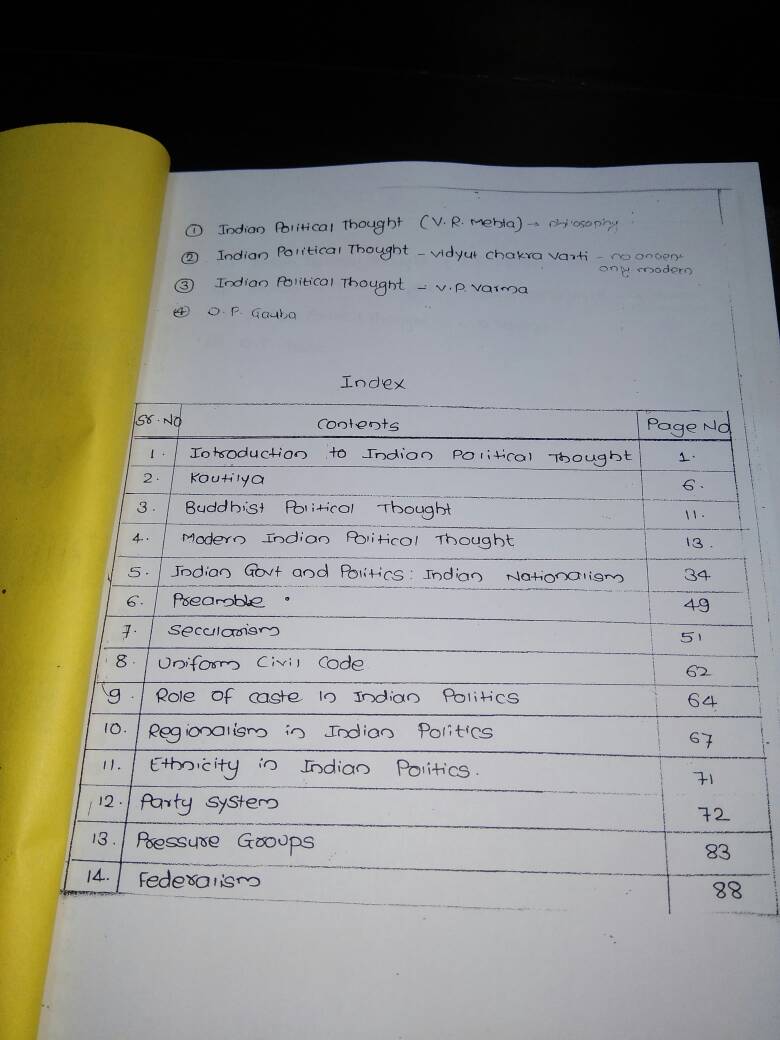 ① Indian Political Thought (V.R. Mehta) → philosophy
② Indian Political Thought - vidyut chakra varti - no ancient
only modern
③ Indian Political Thought - V.P. Varma
④ O.P. Gauba
Index
Sr. No Contents Page No
1. Introduction to Indian Political Thought 1.
2. Kautilya 6.
3. Buddhist Political Thought 11.
4. Modern Indian Political Thought 13.
5. Indian Govt and Politics: Indian Nationalism 34
6. Preamble 49
7. Secularism 51
8. Uniform Civil Code 62
9. Role of caste in Indian Politics 64
10. Regionalism in Indian Politics 67
11. Ethnicity in Indian Politics. 71
12. Party system 72
13. Pressure Groups 83
14. Federalism 88